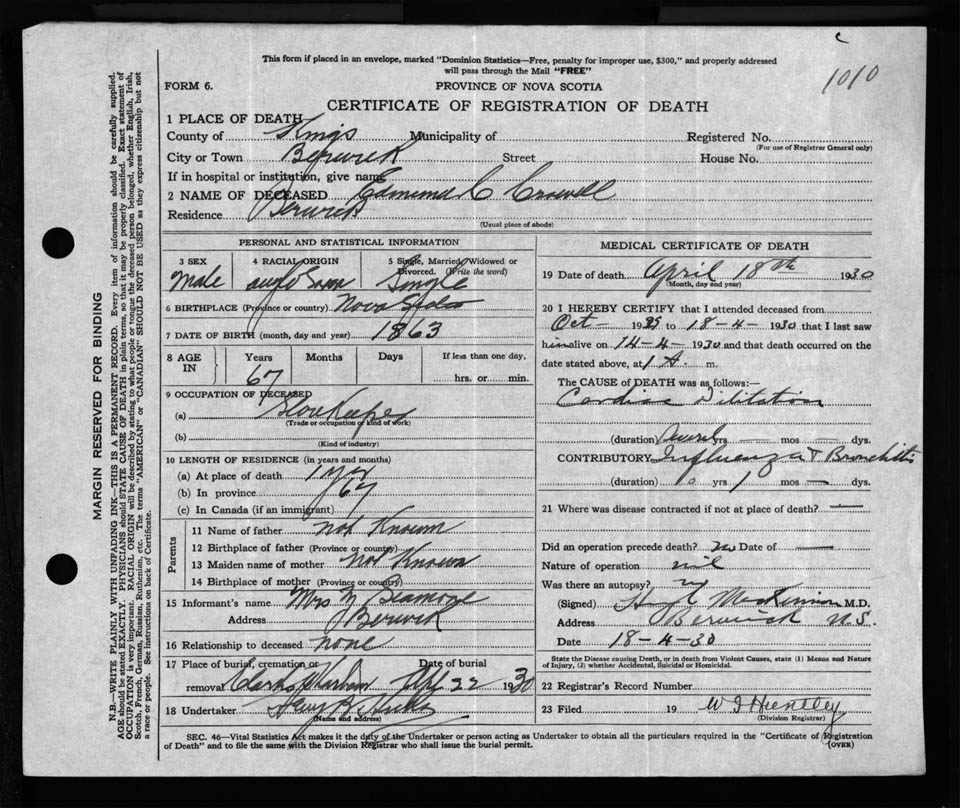 This form if placed in an envelope, marked "Dominion Statistics—Free, penalty for improper use, $300," and properly addressed
will pass through the Mail "FREE"
1010
FORM 6.
PROVINCE OF NOVA SCOTIA
CERTIFICATE OF REGISTRATION OF DEATH
1 PLACE OF DEATH
County of Kings Municipality of Registered No.
(For use of Registrar General only)
City or Town Berwick Street House No.
If in hospital or institution, give name
2 NAME OF DECEASED Edmund C Crowell
Residence Berwick
(Usual place of abode)
PERSONAL AND STATISTICAL INFORMATION
3 SEX 4 RACIAL ORIGIN 5 Single, Married, Widowed or
Divorced. (Write the word)
Male Anglo Saxon Single
6 BIRTHPLACE (Province or country) Nova Scotia
7 DATE OF BIRTH (month, day and year) 1863
8 AGE IN Years Months Days If less than one day,
67 hrs. or min.
9 OCCUPATION OF DECEASED
(a) Storekeeper
(Trade or occupation or kind of work)
(b)
(Kind of industry)
10 LENGTH OF RESIDENCE (in years and months)
(a) At place of death 1 yr
(b) In province 67
(c) In Canada (if an immigrant)
Parents
11 Name of father not Known
12 Birthplace of father (Province or country)
13 Maiden name of mother Not Known
14 Birthplace of mother (Province or country)
15 Informant's name Mrs
Address Berwick
16 Relationship to deceased none
17 Place of burial, cremation or Date of burial
removal Clarks Harbour Apl 22 1930
18 Undertaker
(Name and address)
MEDICAL CERTIFICATE OF DEATH
19 Date of death April 18th 1930
(Month, day and year)
20 I HEREBY CERTIFY that I attended deceased from
Oct - 19 to 18-4- 1930 that I last saw
him alive on 14-4- 1930 and that death occurred on the
date stated above, at 1 A. m.
The CAUSE of DEATH was as follows:—
Cardiac Dilitation
(duration) yrs — mos — dys.
CONTRIBUTORY Influenza + Bronchitis
(duration) yrs 1 mos — dys.
21 Where was disease contracted if not at place of death? —
Did an operation precede death? no Date of —
Nature of operation nil
Was there an autopsy? no
(Signed) M.D.
Address Berwick N.S.
Date 18-4-30
State the Disease causing Death, or in death from Violent Causes, state (1) Means and Nature
of Injury, (2) whether Accidental, Suicidal or Homicidal.
22 Registrar's Record Number
23 Filed 19 W J Huntley
(Division Registrar)
SEC. 46—Vital Statistics Act makes it the duty of the Undertaker or person acting as Undertaker to obtain all the particulars required in the "Certificate of Registration
of Death" and to file the same with the Division Registrar who shall issue the burial permit.
(OVER)
MARGIN RESERVED FOR BINDING
N.B.—WRITE PLAINLY WITH UNFADING INK—THIS IS A PERMANENT RECORD. Every item of information should be carefully supplied.
AGE should be stated EXACTLY. PHYSICIANS should STATE CAUSE OF DEATH in plain terms, so that it may be properly classified. Exact statement of
OCCUPATION is very important. RACIAL ORIGIN will be described by stating to what people or tongue the deceased person belonged, whether English, Irish,
Scotch, French, German, Russian, Ruthenian, etc. The terms "AMERICAN" or "CANADIAN" SHOULD NOT BE USED as they express citizenship but not
a race or people. See instructions on back of Certificate.